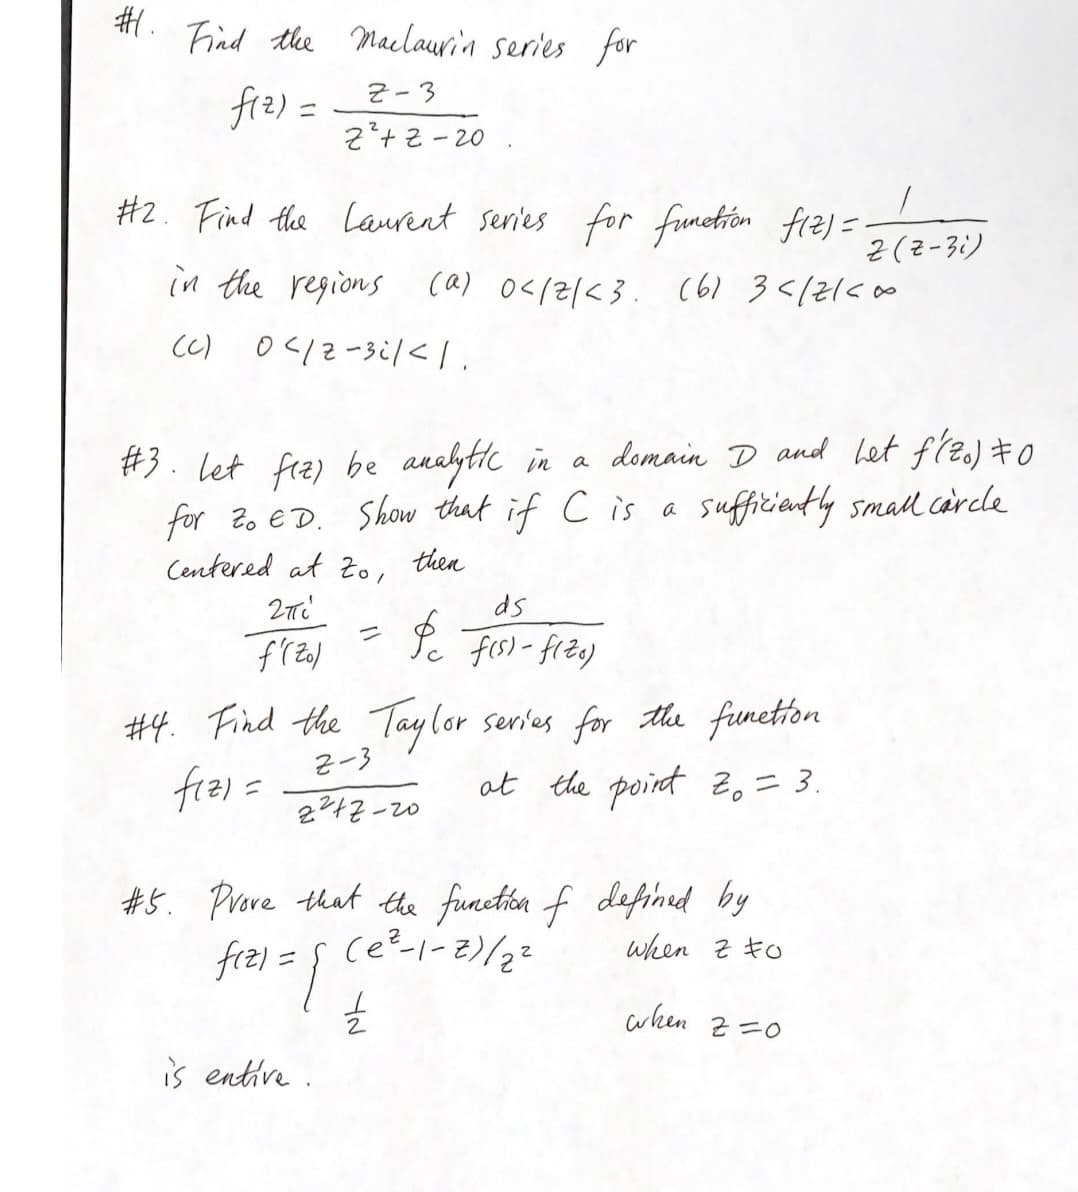 #1. Find the Maclaurin series for
f(z) = z-3 / z²+z-20 .
#2. Find the Laurent series for function f(z) = 1 / z(z-3i)
in the regions (a) 0<|z|<3. (b) 3<|z|<∞
(c) 0<|z-3i|<1.
#3. Let f(z) be analytic in a domain D and let f'(z₀)≠0
for z₀ ∈ D. Show that if C is a sufficiently small circle
centered at z₀, then
2πi / f'(z₀) = ∮c ds / f(s)-f(z₀)
#4. Find the Taylor series for the function
f(z) = z-3 / z²+z-20 at the point z₀ = 3.
#5. Prove that the function f defined by
f(z) = { (e^z-1-z)/z² when z ≠ 0
1/2 when z = 0
is entire.